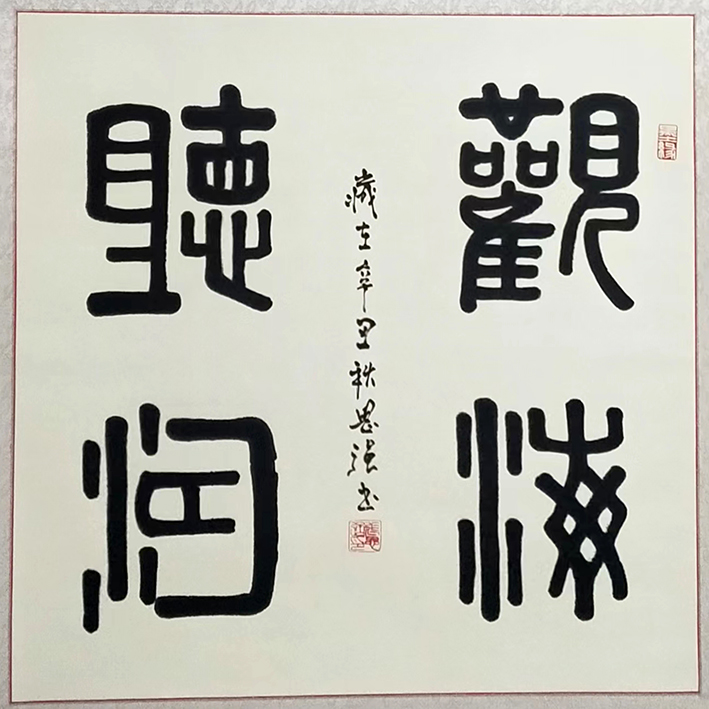 觀海
歲在辛丑秋思强书
聽濤